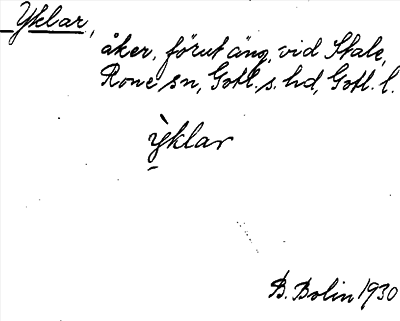 Yklar,
åker, förut äng, vid Stale,
Rone sn, Gotl. s. hd, Gotl. l.
ỳklar
B. Bolin 1930